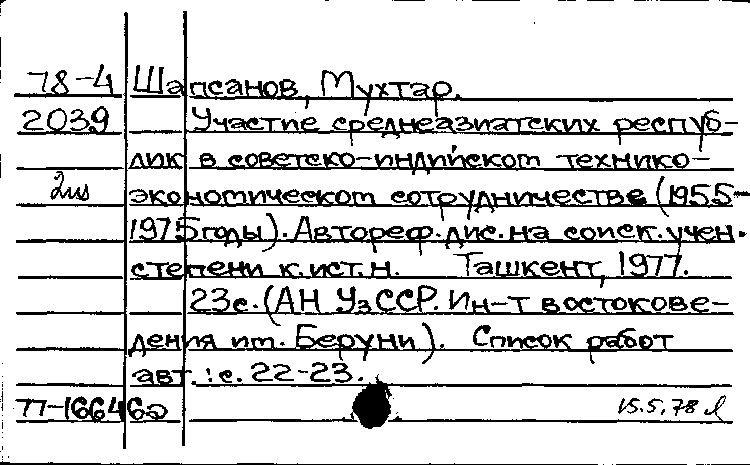 78-4 Шапсанов, Мухтар.
2039 Участие среднеазиатских респуб-
лик в советско-индийском технико-
2из экономическом сотрудничестве (1955-
1975 годы). Автореф. дис. на соиск. учен.
степени к. ист. н. Ташкент, 1977.
23с. (АН УзССР. Ин-т востокове-
дения им. Беруни). Список работ
авт.: с. 22-23.
77-16646а
15.5.78